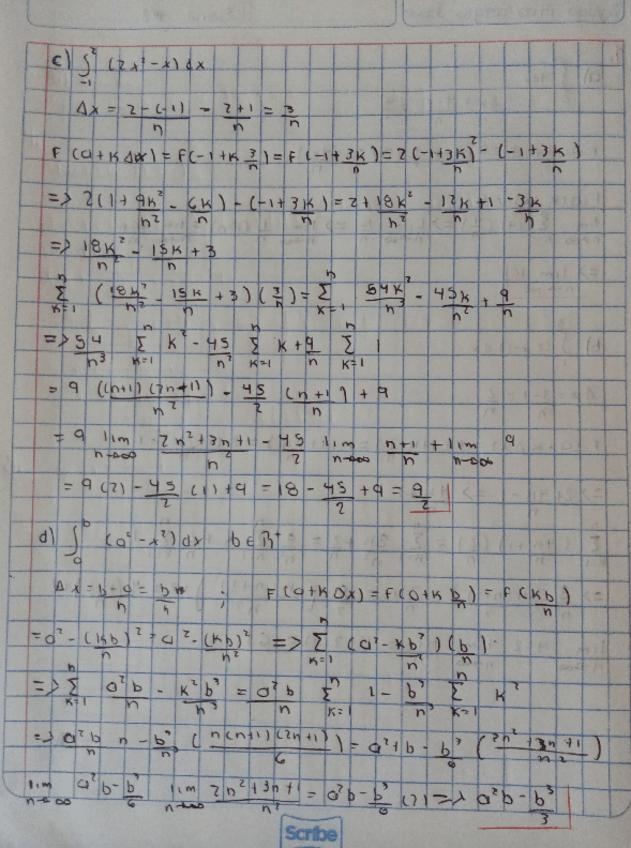 c) ∫_{-1}^{2} (2x²-x)dx
Δx = 2-(-1)/n - 2+1/n = 3/n
F(a+KΔx) = F(-1+K 3/n) = F(-1+3K/n) = 2(-1+3K/n)² - (-1+3K/n)
=> 2(1+9K²/n² - 6K/n) - (-1+3K/n) = 2+18K²/n² - 12K/n + 1 - 3K/n
=> 18K²/n² - 15K/n + 3
Σ_{K=1}^{n} (18K²/n² - 15K/n + 3)(3/n) = Σ_{K=1}^{n} 54K²/n³ - 45K/n² + 9/n
=> 54/n³ Σ_{K=1}^{n} K² - 45/n² Σ_{K=1}^{n} K + 9/n Σ_{K=1}^{n} 1
= 9 ((n+1)(2n+1)/n²) - 45/2 (n+1/n) + 9
= 9 lim_{n→∞} 2n²+3n+1/n² - 45/2 lim_{n→∞} n+1/n + lim_{n→∞} 9
= 9(2) - 45/2 (1) + 9 = 18 - 45/2 + 9 = 9/2
d) ∫_{0}^{b} (a²-x²)dx b∈ℝ⁺
Δx = b-0/n = b/n ; F(a+KΔx) = F(0+K b/n) = F(Kb/n)
= a² - (Kb/n)² = a² - (Kb)²/n² => Σ_{K=1}^{n} (a² - Kb²/n²)(b/n)
=> Σ_{K=1}^{n} a²b/n - K²b³/n³ = a²b/n Σ_{K=1}^{n} 1 - b³/n³ Σ_{K=1}^{n} K²
=> a²b/n n - b³/n³ (n(n+1)(2n+1)/6) = a²+b - b³/6 (2n²+3n+1/n²)
lim_{n→∞} a²b - b³/6 lim_{n→∞} 2n²+3n+1/n² = a²b - b³/6 (2) => a²b - b³/3
Scribe